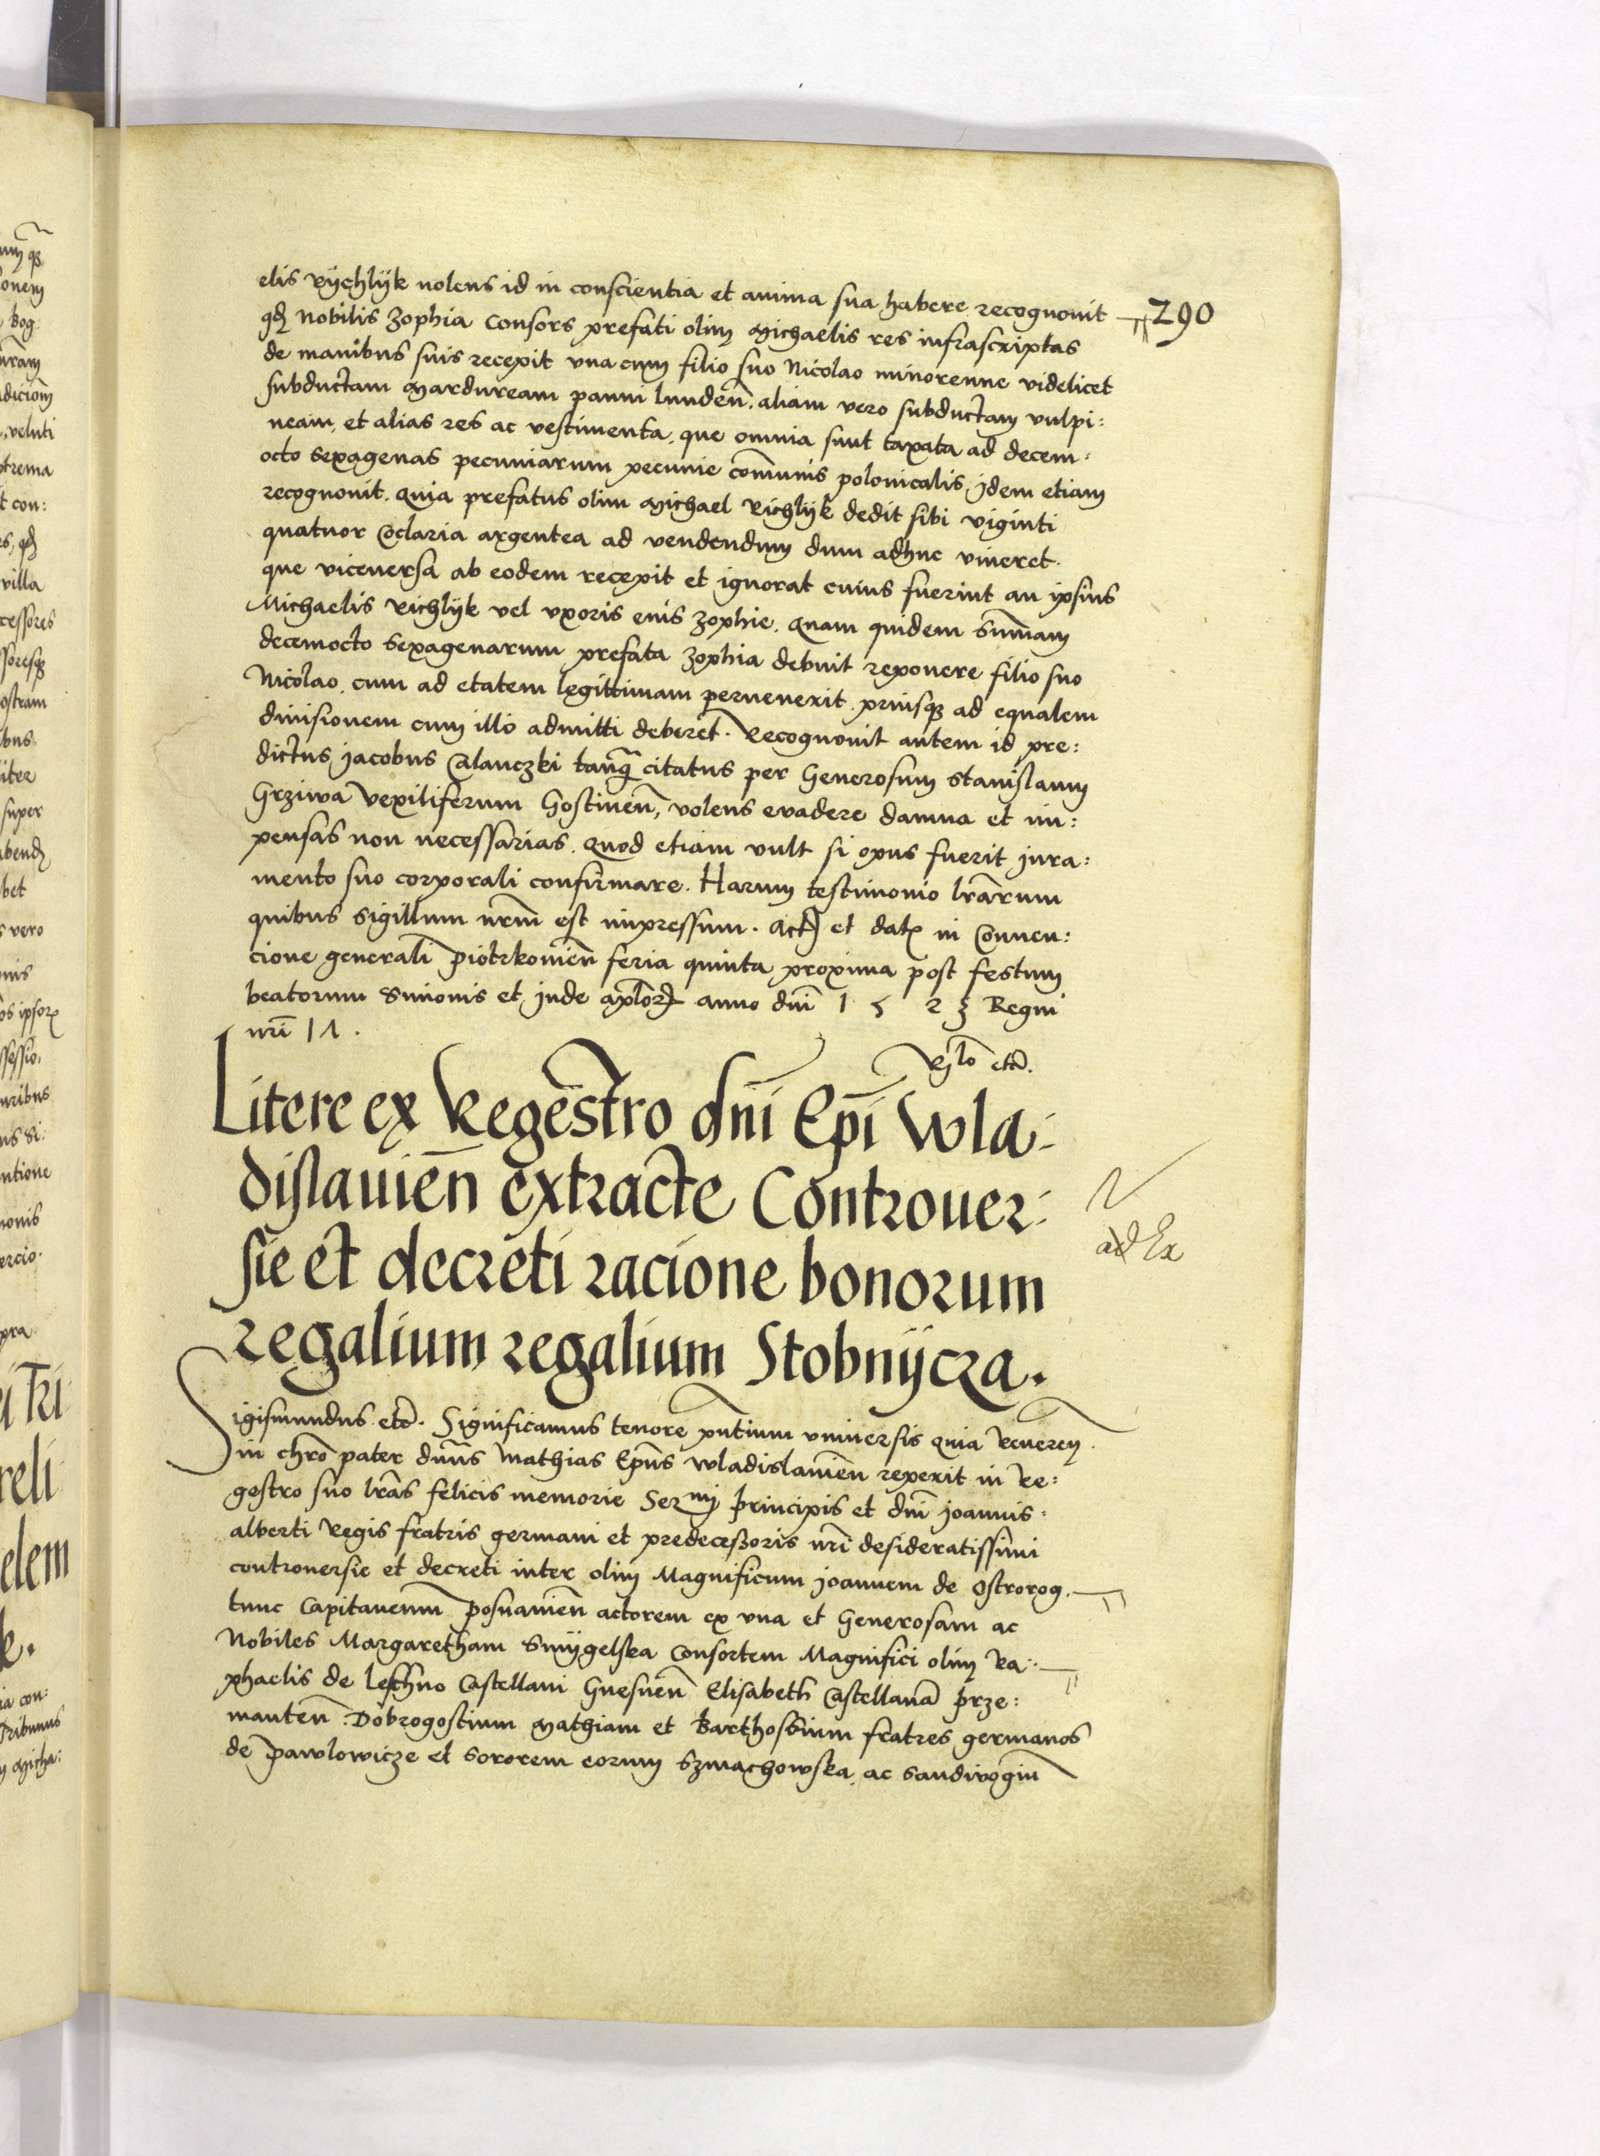 290
elis Rÿchlÿk nolens id in conscientia et anima sua habere recognouit
qđ Nobilis Zophia consors prefati olim Michaelis res infrascriptas
de manibus suis recepit vna cum filio suo Nicolao minorenne videlicet
subductam Marduream panni lunden̄. aliam vero subductam vulpi:
neam, et alias res ac vestimenta, que omnia sunt taxata ad decem:
octo sexagenas pecuniarum pecunie com̄unis polonicalis, jdem etiam
recognouit. Quia prefatus olim Michael Richlÿk dedit sibi viginti
quatuor Coclaria argentea ad vendendum dum adhuc viueret.
que viceuersa ab eodem recepit et ignorat cuius fuerint an ipsius
Michaelis Richlÿk vel vxoris eius Zophie. Quam quidem sum̄am
decemocto sexagenarum prefata Zophia debuit reponere filio suo
Nicolao. cum ad etatem legittimam peruenerit. priusqꝫ ad equalem
diuisionem cum illo admitti deberet. Recognouit autem id pre:
dictus jacobus Calanczki tanq̄ citatus per Generosum Stanislaum
Grziwa Vexiliferum Gostinen̄, volens euadere damna et im:
pensas non necessarias. Quod etiam vult si opus fuerit jura:
mento suo corporali confirmare. Harum testimonio lr̄arum
quibus sigillum nr̄m est impressum. Act̄ et dat̄ in Conuen:
cione generali Piotrkouien̄ feria quinta proxima post festum
beatorum Simonis et jude ap̄lor̄ anno dn̄i 1 5 2 3 Regni
nr̄i 17.
Rīlo etc̄.
Litere ex Regestro dn̄i Ep̄i Wla:
dislauien̄ extracte Controuer:
sie et decreti racione bonorum
regalium regalium Stobnÿcza.
ad Ex
Sigismundus etc̄. Significamus tenore pn̄tium vniuersis quia Reueren.
in chr̄o pater dn̄us Mathias Ep̄us Wladislauien̄ reperit in Re:
gestro suo lr̄as felicis memorie Sermi principis et dn̄i joannis:
alberti Regis fratris germani et predecessoris nr̄i desideratissimi
controuersie et decreti inter olim Magnificum joannem de Ostrorog.
tunc Capitaneum Posnanien̄ actorem ex vna et Generosam ac
Nobiles Margaretham Smÿgelska consortem Magnifici olim Ra:
phaelis de leschno Castellani Gnesnen̄ Elisabeth Castellanā Prze:
manten̄. Dobrogostium Mathiam et Barthossium fratres germanos
de Pawlowicze et sororem eorum Szmachowska, ac Sandiuogiū